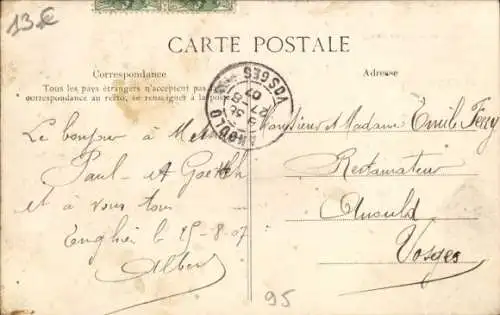 13 €
CARTE POSTALE
Correspondance
Tous les pays étrangers n'acceptent pas
correspondance au recto, se renseigner à la poste
Le bonjour à
Paul et
et à vous tous
Enghien le 25-8-07
Albert
VOSGES
Adresse
Monsieur et Madame Emile Ferry
Restaurateur
Vosges
95